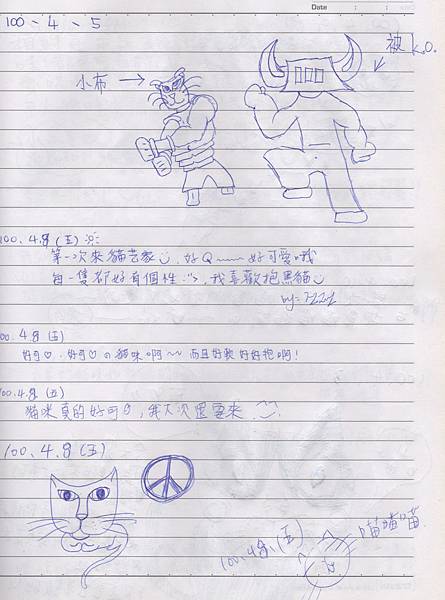 Date
100、4、5
被K.O.
小布
100.4.8 (五)
第一次來貓芒家 好Q~~~好可愛哦
每一隻都好有個性 我喜歡抱黑貓
by:
100.4.8 (五)
好可♡.好可♡の貓咪啊~~而且好軟好好抱啊!
100.4.8 (五)
貓咪真的好可,我下次還要來.
100.4.8(五)
100.4.8.(五)
喵喳"喵